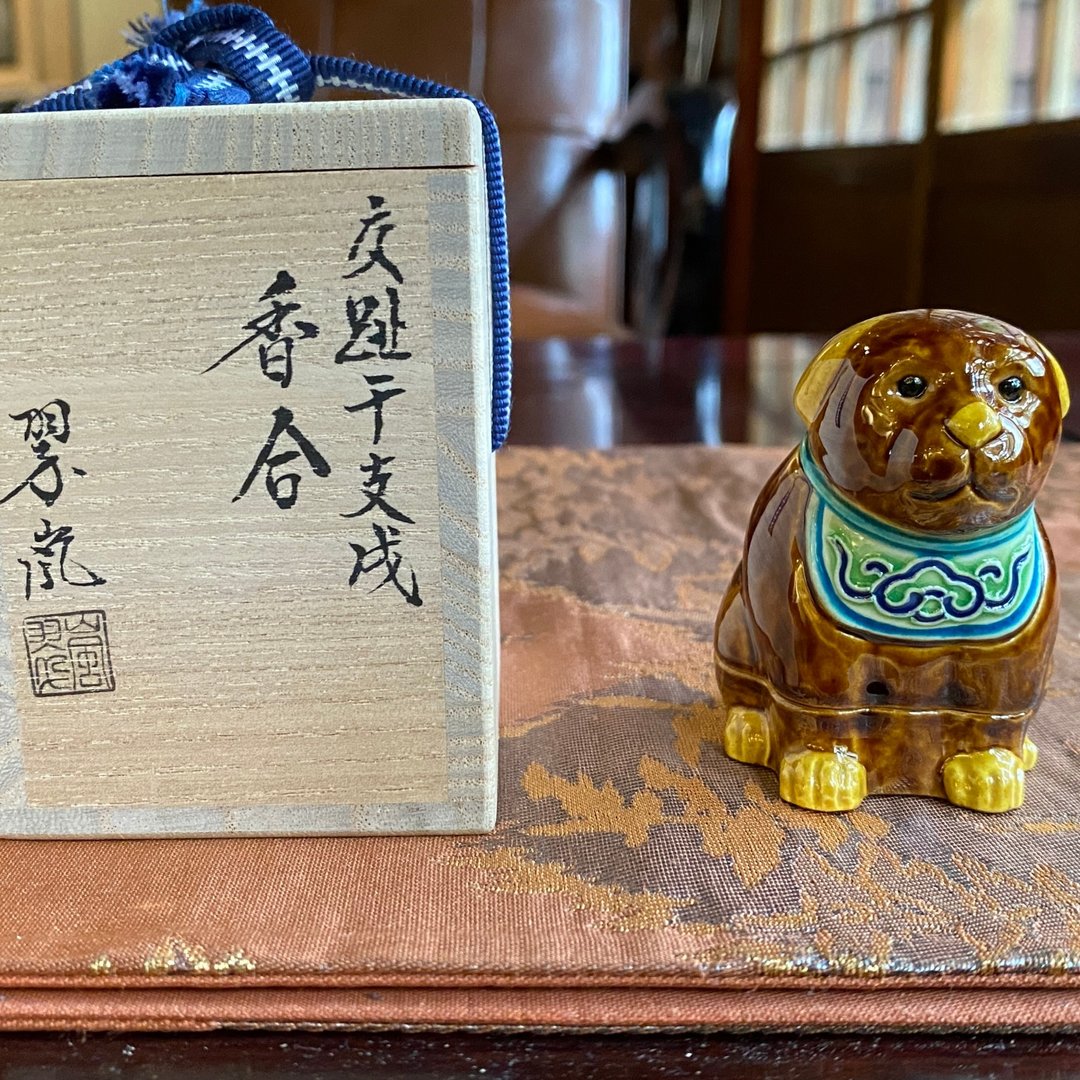 交趾干支戌
香合
翠嵐
翠嵐